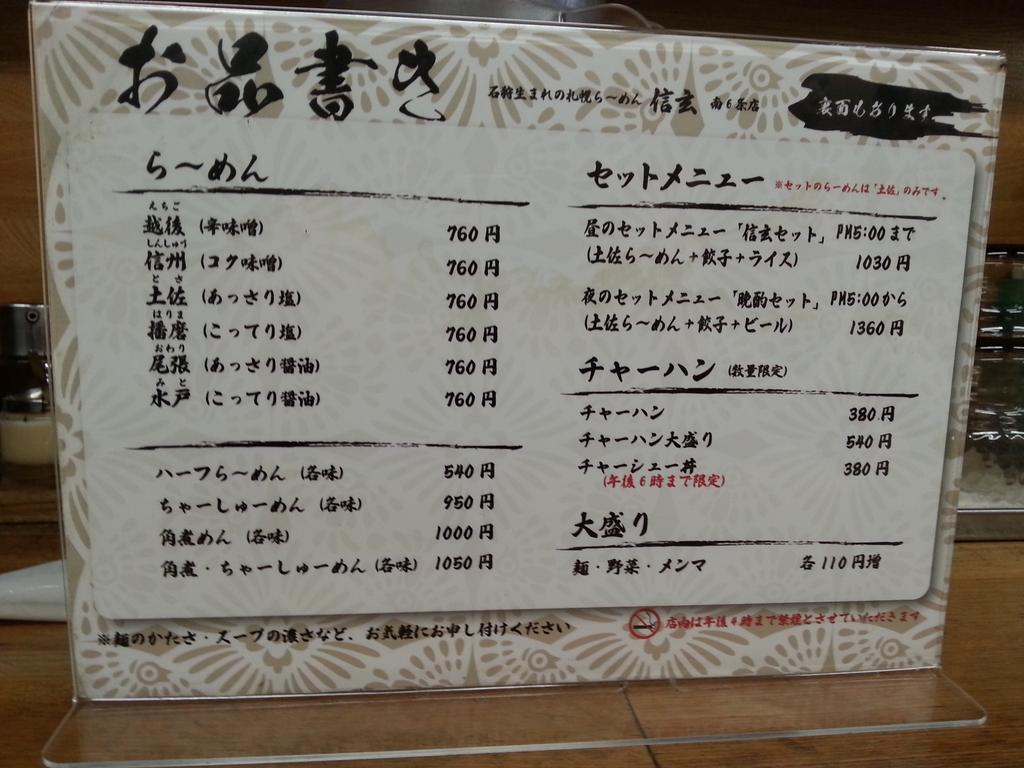 お品書き
石狩生まれの札幌ら〜めん 信玄 南6条店
裏面もあります
ら〜めん
えちご
越後 (辛味噌) 760円
しんしゅう
信州 (コク味噌) 760円
とさ
土佐 (あっさり塩) 760円
はりま
播磨 (こってり塩) 760円
おわり
尾張 (あっさり醤油) 760円
みと
水戸 (こってり醤油) 760円
ハーフら〜めん (各味) 540円
ちゃーしゅーめん (各味) 950円
角煮めん (各味) 1000円
角煮・ちゃーしゅーめん (各味) 1050円
セットメニュー ※セットのらーめんは「土佐」のみです。
昼のセットメニュー「信玄セット」PM5:00まで
(土佐ら〜めん+餃子+ライス) 1030円
夜のセットメニュー「晩酌セット」PM5:00から
(土佐ら〜めん+餃子+ビール) 1360円
チャーハン (数量限定)
チャーハン 380円
チャーハン大盛り 540円
チャーシュー丼 380円
(午後6時まで限定)
大盛り
麺・野菜・メンマ 各110円増
※麺のかたさ・スープの濃さなど、お気軽にお申し付けください
店内は午後4時まで禁煙とさせていただきます